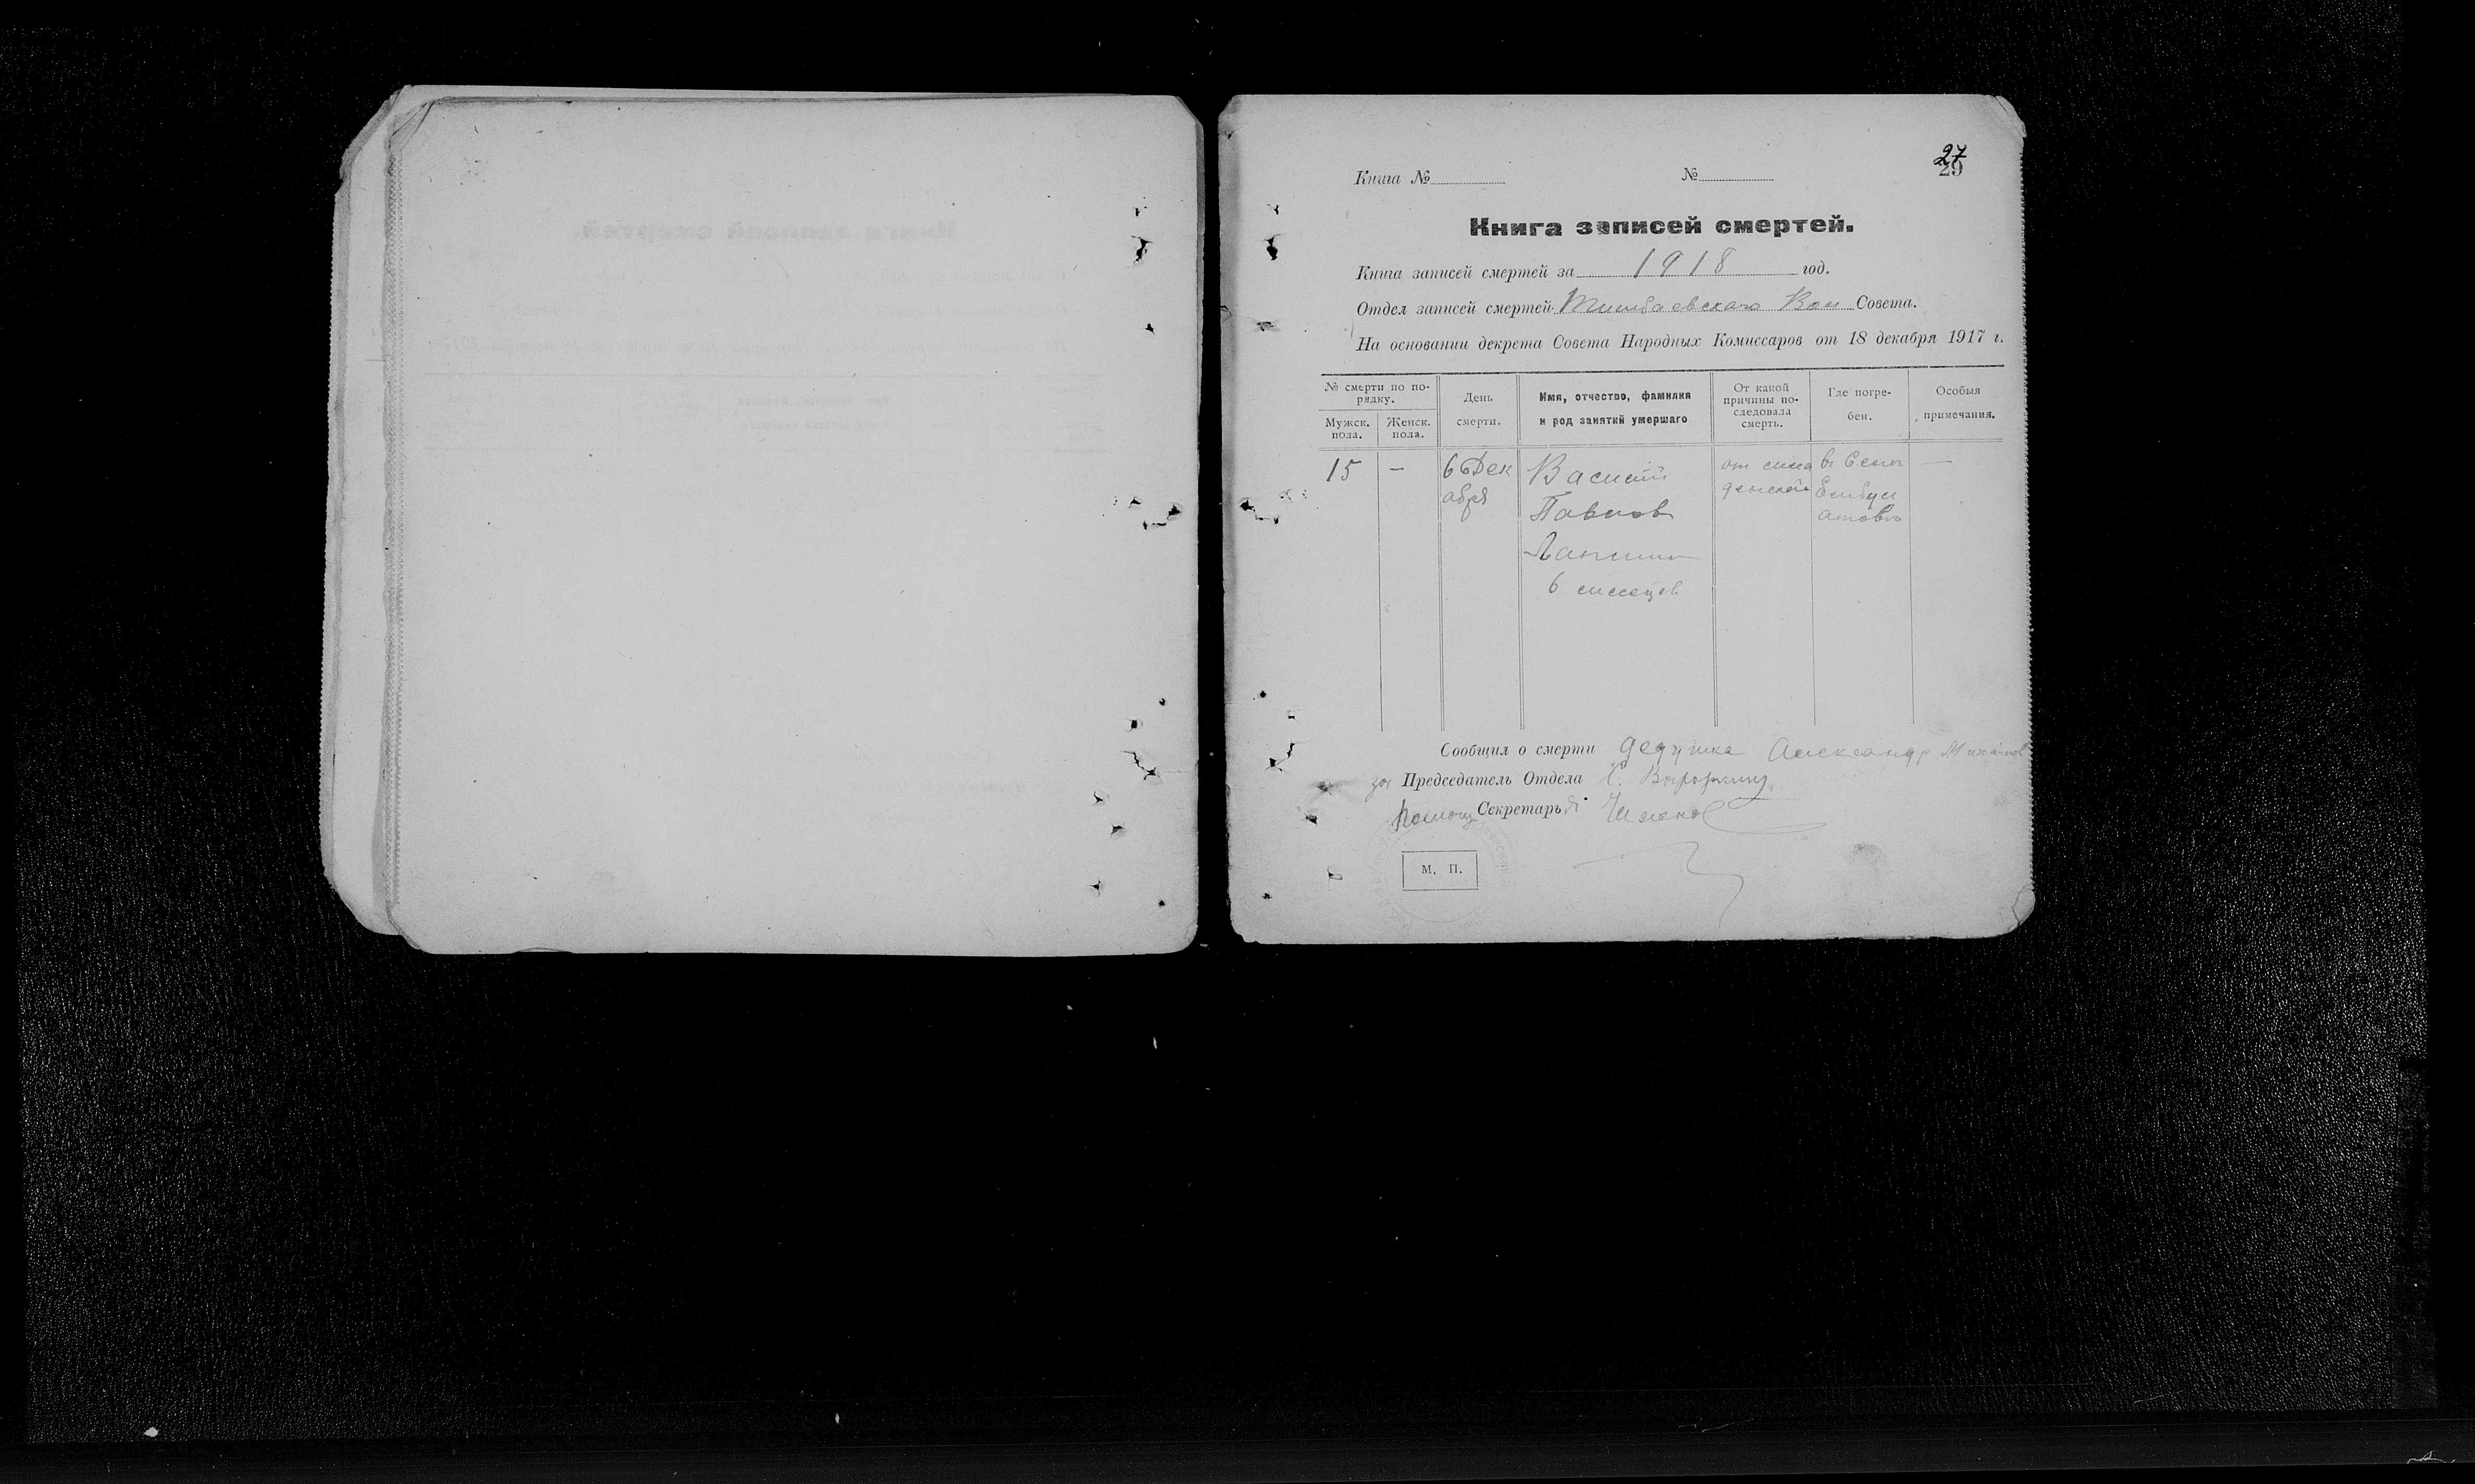 27
29
Книга № №
Книга записей смертей.
Книга записей смертей за 1918 год.
Отдел записей смертей Тимбаевскаго Вол Совета.
На основании декрета Совета Народных Комиссаров от 18 декабря 1917 г.
№ смерти по по-
рядку.
Мужск.
пола.
Женск.
пола.
День
смерти.
Имя, отчество, фамилия
и род занятий умершаго
От какой
причины по-
следовала
смерть.
Где погре-
бен.
Особыя
примечания.
15 — 6 Дек
абря
Василий
Павлов
Лапшин
6 месецов
от
в Селе
—
Сообщил о смерти дедушка Александр Михайлов
за Председатель Отдела
Помощ Секретарь
М. П.